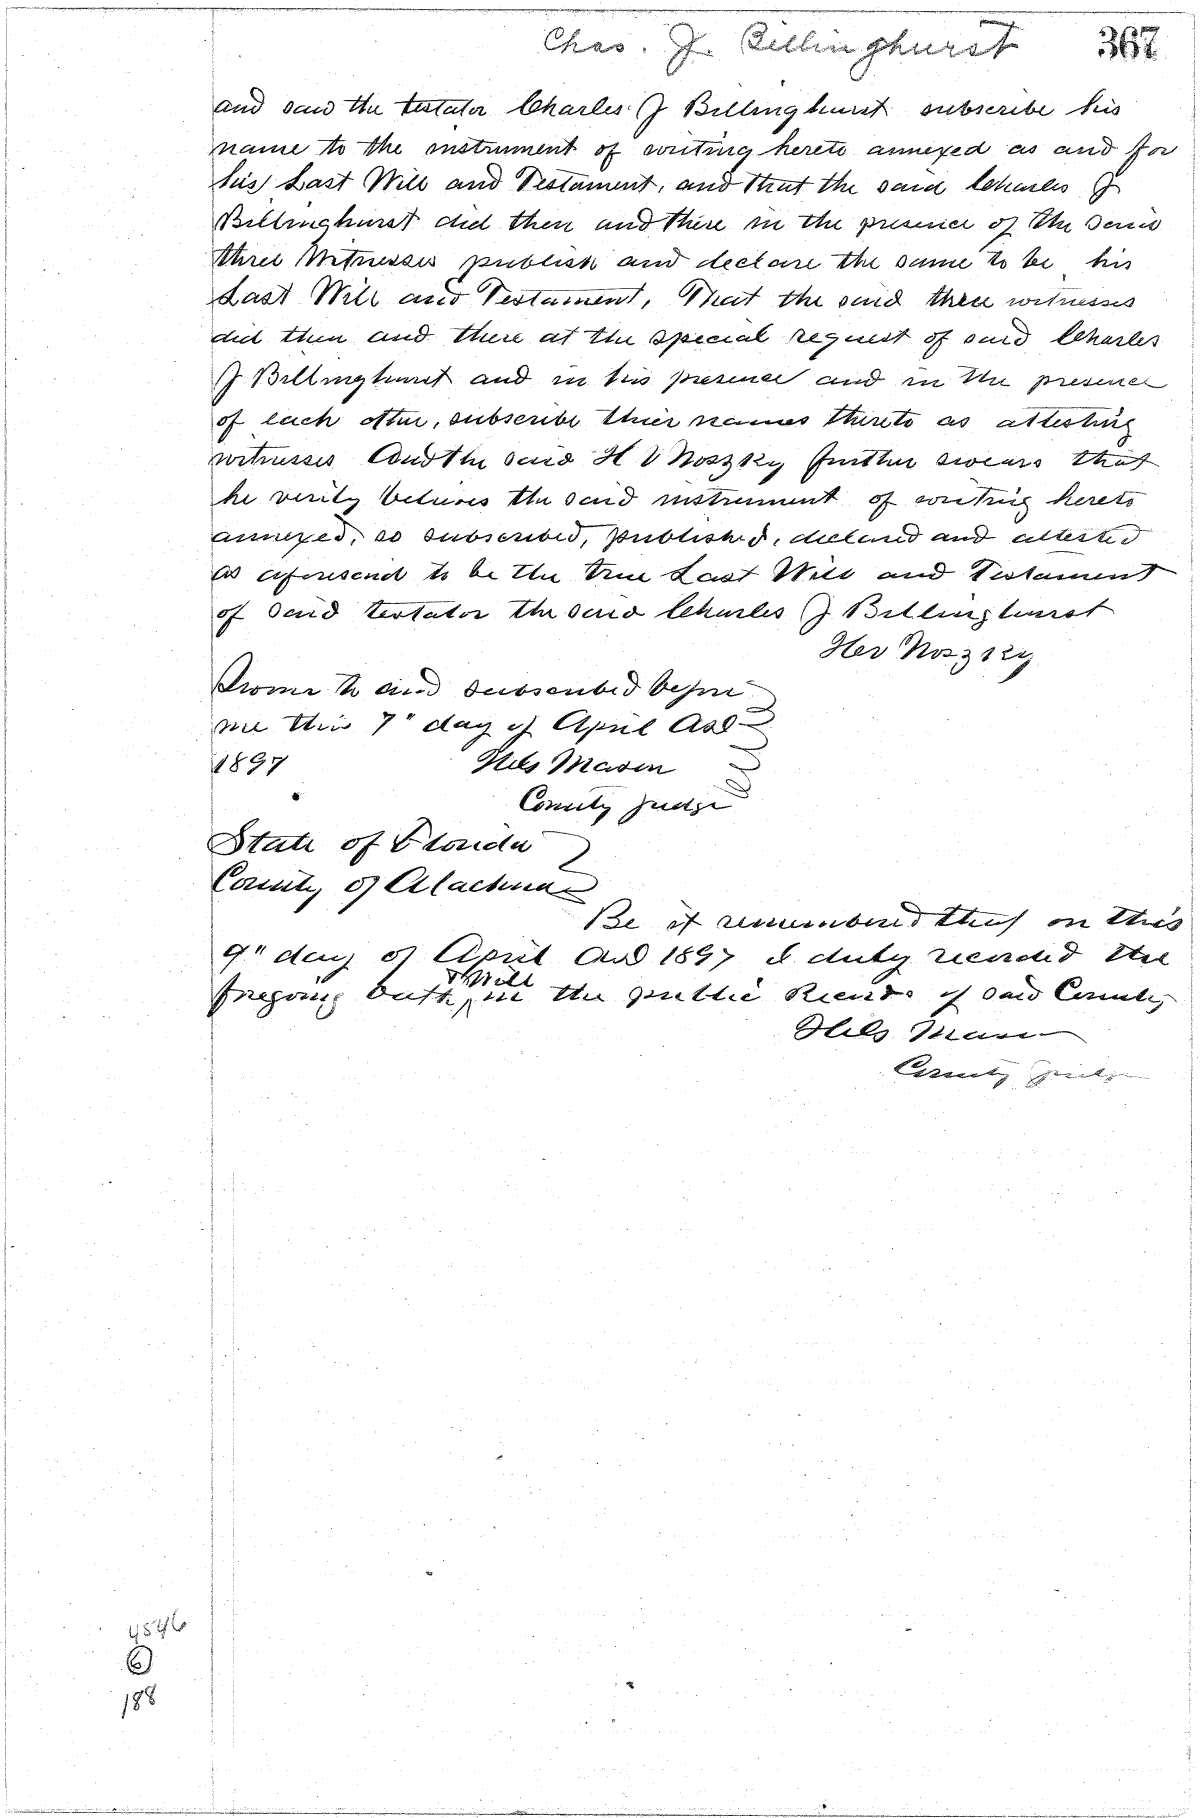 Chas. J. Billinghurst 367
and saw the testator Charles J Billinghurst subscribe his
name to the instrument of writing hereto annexed as and for
his Last Will and Testament, and that the said Charles J
Billinghurst did then and there in the presence of the said
three Witnesses publish and declare the same to be his
Last Will and Testament, That the said three witnesses
did then and there at the special request of said Charles
J Billinghurst and in his presence and in the presence
of each other, subscribe their names thereto as attesting
witnesses And the said H V Noszky further swears that
he verily believes the said instrument of writing hereto
annexed, so subscribed, published, declared and attested
as aforesaid to be the true Last Will and Testament
of said testator the said Charles J Billinghurst
Noszky
Sworn to and subscribed before
me this 7" day of April AD
1897 Mason
County Judge
State of Florida
County of Alachua
Be it remembered that on this
9" day of April AD 1897 I duly recorded the
foregoing oath & Will in the public Records of said County
Mason
County Judge
4546
6
188